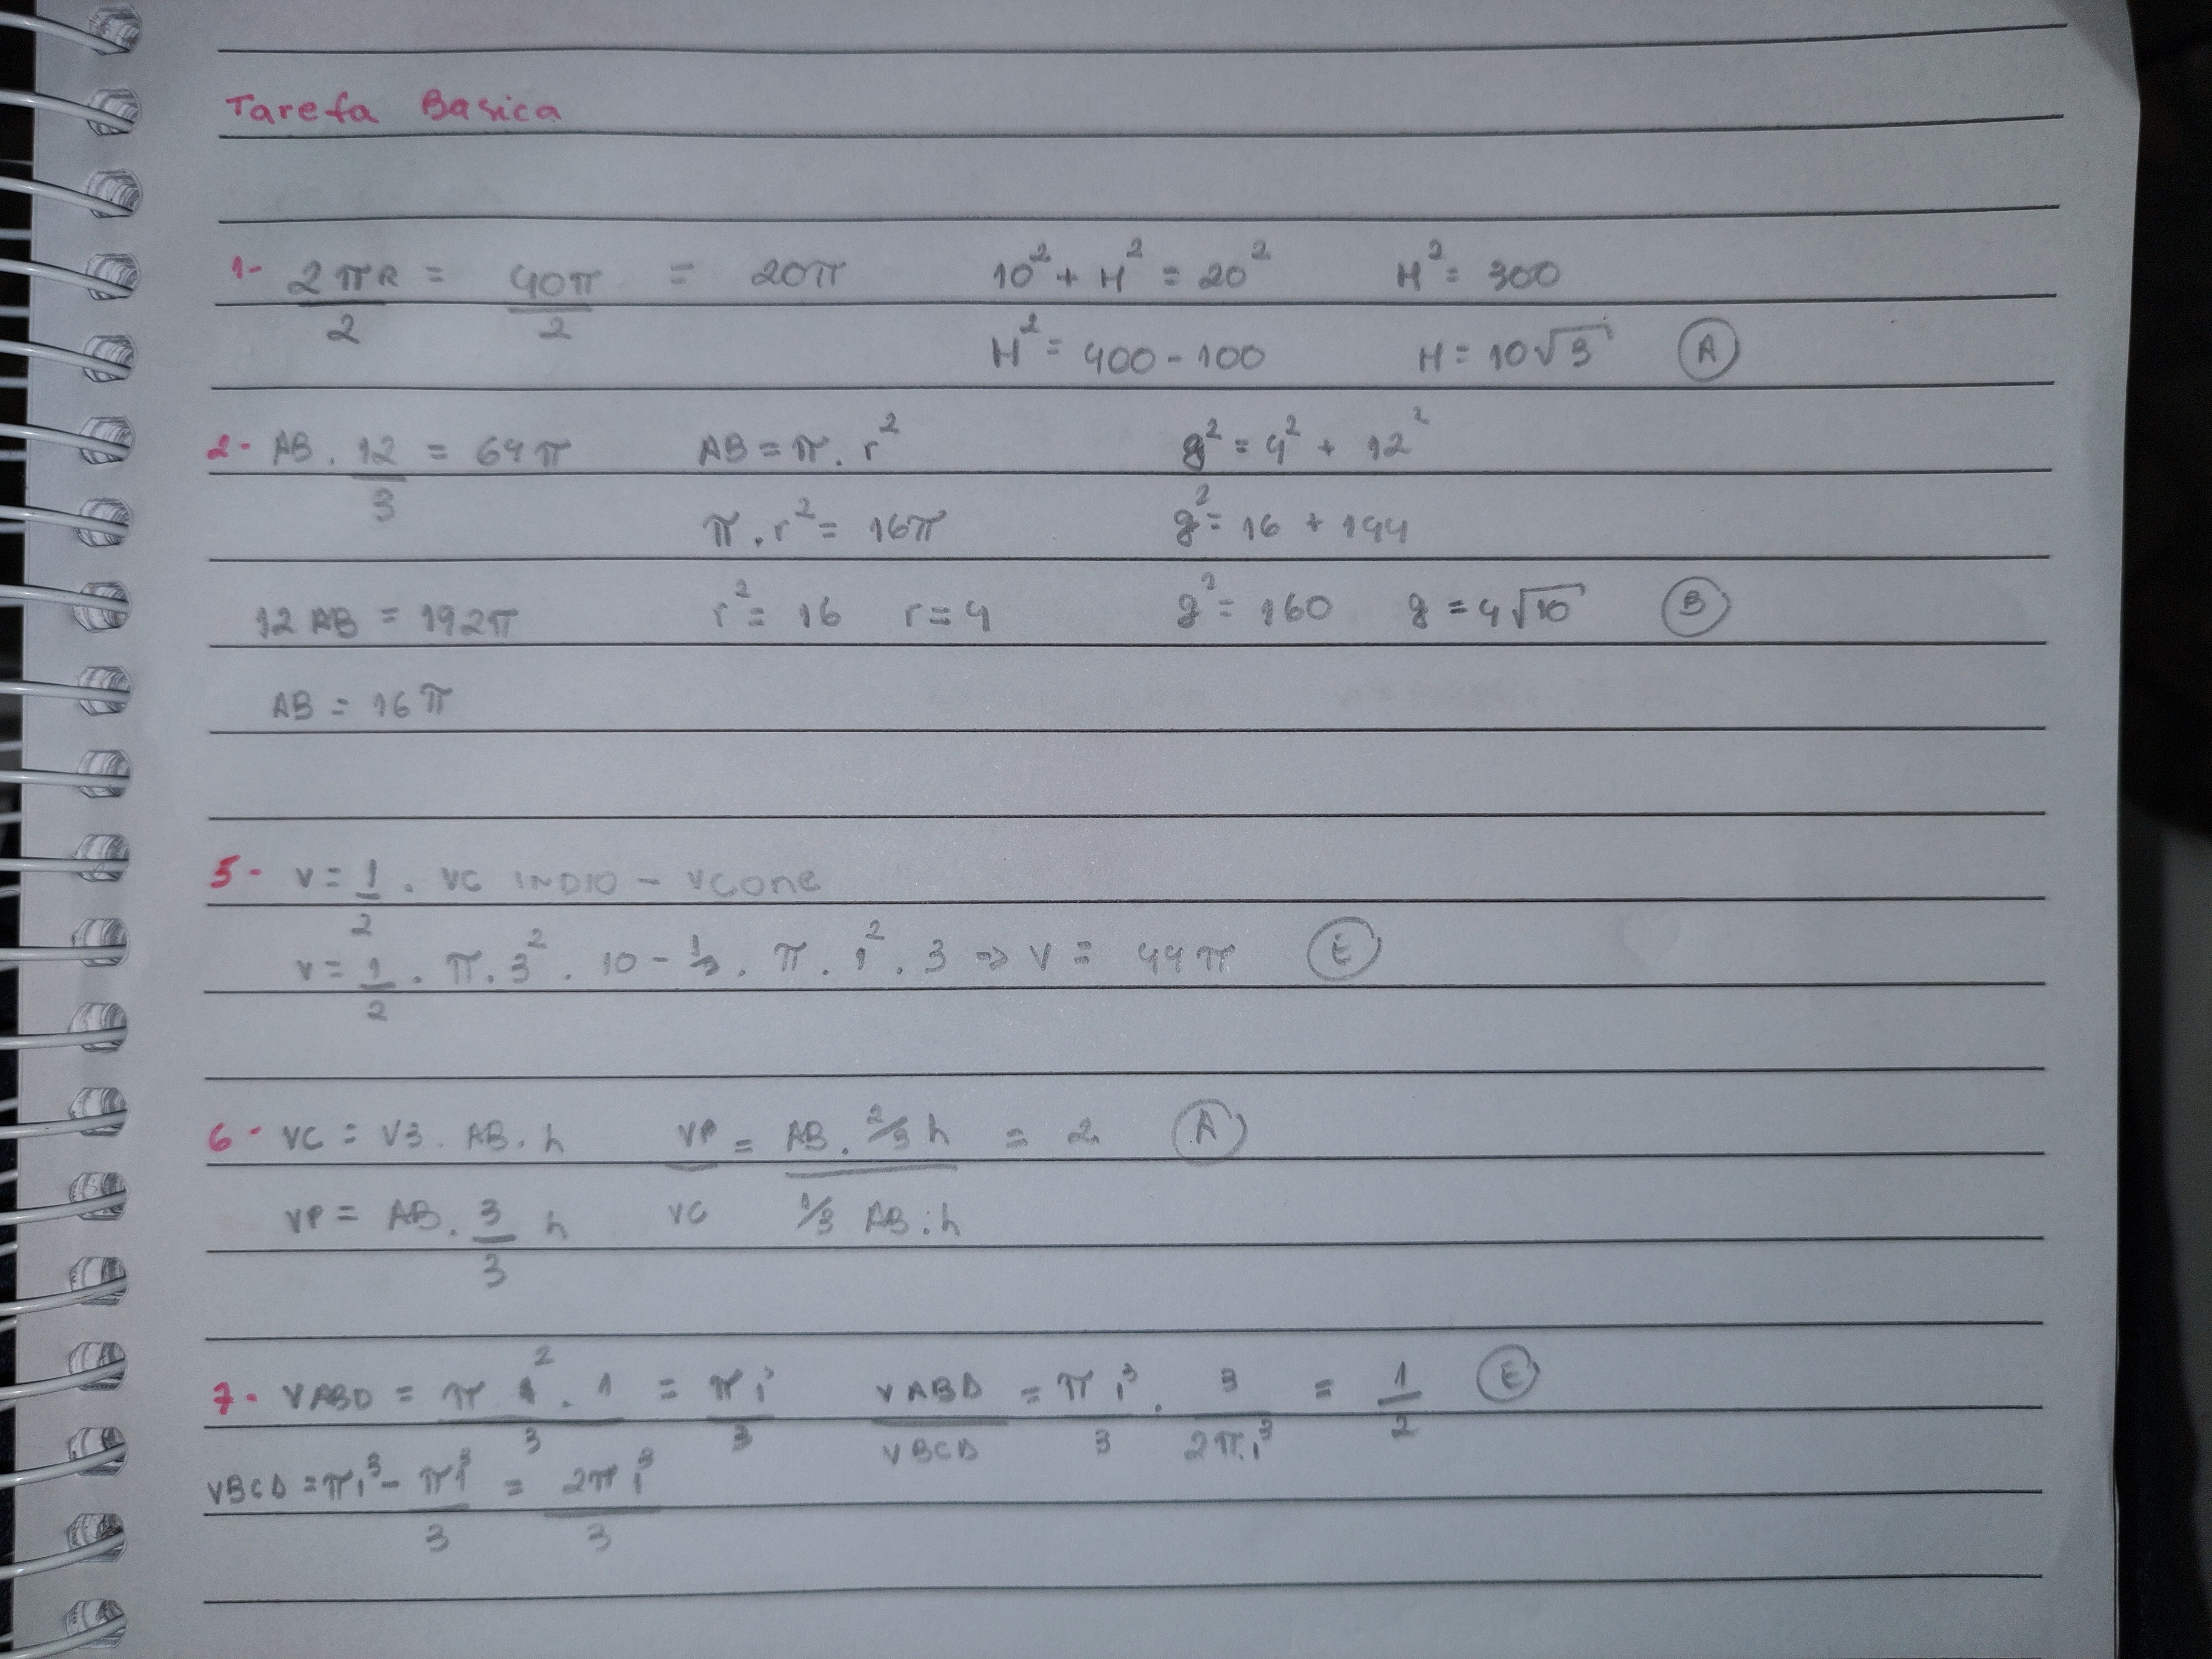 Tarefa Basica
1- 2πR/2 = 40π/2 = 20π 10² + H² = 20² H² = 300
H² = 400 - 100 H = 10√3 (A)
2- AB . 12/3 = 64π AB = π . r² g² = 4² + 12²
π . r² = 16π g² = 16 + 144
12 AB = 192π r² = 16 r = 4 g² = 160 g = 4√10 (B)
AB = 16π
5- V = 1/2 . VC INDIO - VCONE
V = 1/2 . π . 3² . 10 - 1/3 . π . 1² . 3 => V = 44π (E)
6- VC = V3 . AB . h VP/VC = AB . 2/3 h / 1/3 AB . h = 2 (A)
VP = AB . 3/3 h
7- VABD = π 1² . 1/3 = π i³/3 VABD/VBCD = π i³/3 . 3/2π i³ = 1/2 (E)
VBCD = π i³ - π i³/3 = 2π i³/3